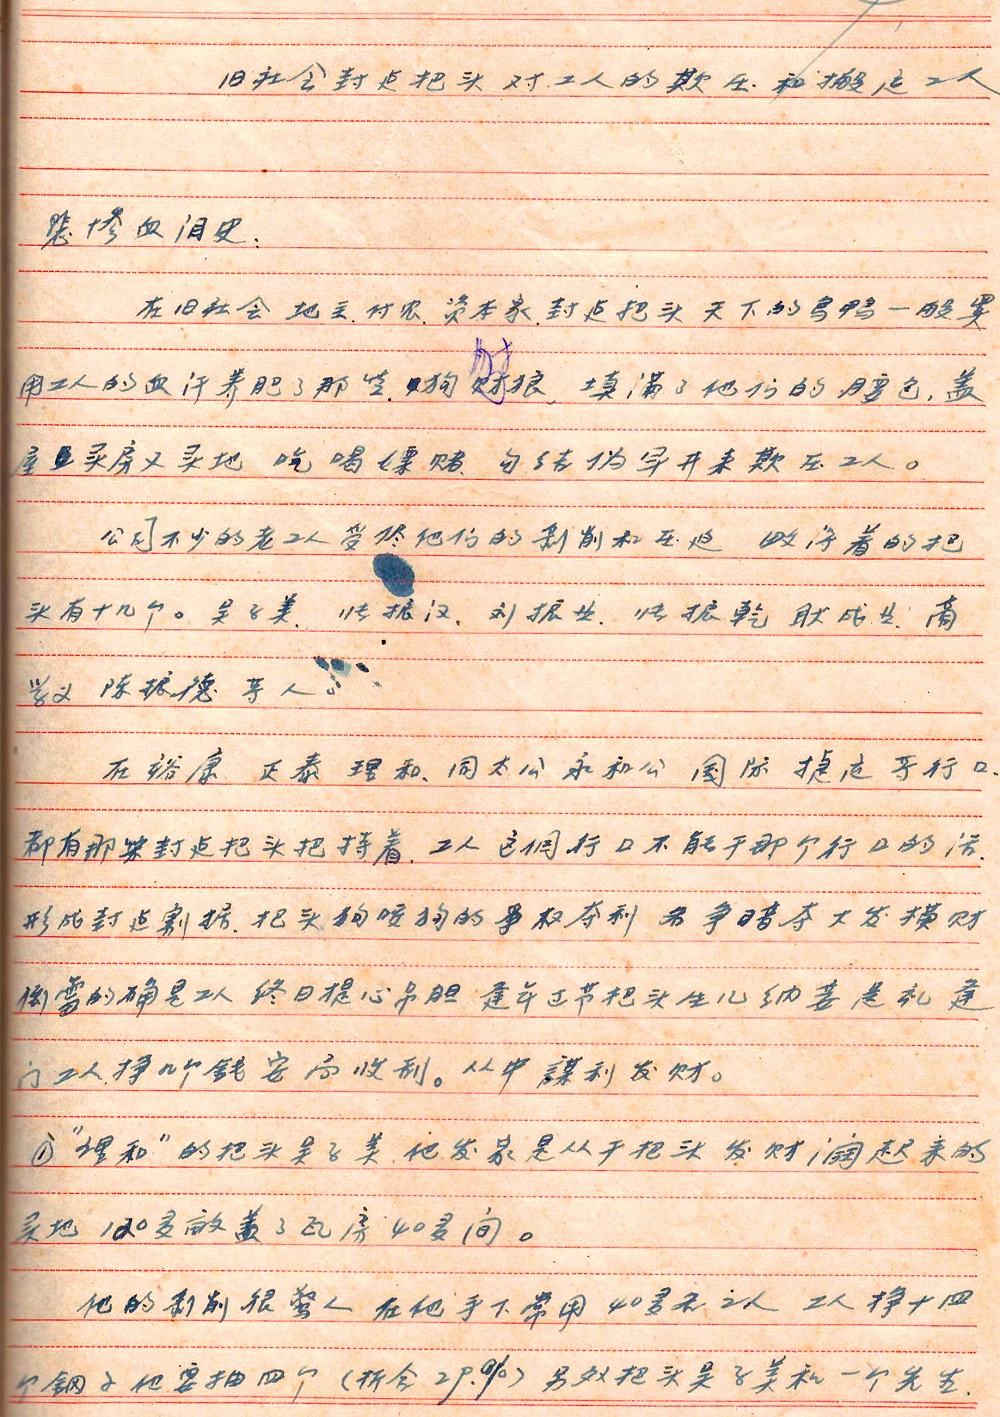 旧社会封点把头对工人的欺压.和搬运工人
悲惨血泪史.
在旧社会地主.付农.资本家.封点把头天下的乌鸦一般黑
用工人的血汗养肥了那些狗财狼.填满了他们的腰包.盖
屋买房又买地 吃喝嫖赌 勾结伪军开来欺压工人。
公司不少的老工人受尽他们的剥削和压迫 收浮着的把
头有十几个。吴子美.张振汉.刘振生.张振乾 耿成生.商
学义 陈振德等人。
在裕康 正泰 理和.同太公 永和公 国际 捷运等行口.
都有那些封点把头把持着.工人这個行口不能干那个行口的活.
形成封点割据.把头狗咬狗的争权夺利 明争暗夺大发横财
倒霉的确是工人 终日提心吊胆 逢年过节把头生儿纳妾送礼逢
门工人挣几个钱 收刮。从中謀利发财。
①"理和"的把头吴子美 他发家是从干把头发财阔起来的
买地120多畝盖了瓦房40多间。
他的剥削很驚人 在他手下常用40多名工人 工人挣十四
个銅子他要抽四个(折合29.%)另外把头吴子美和一个先生.